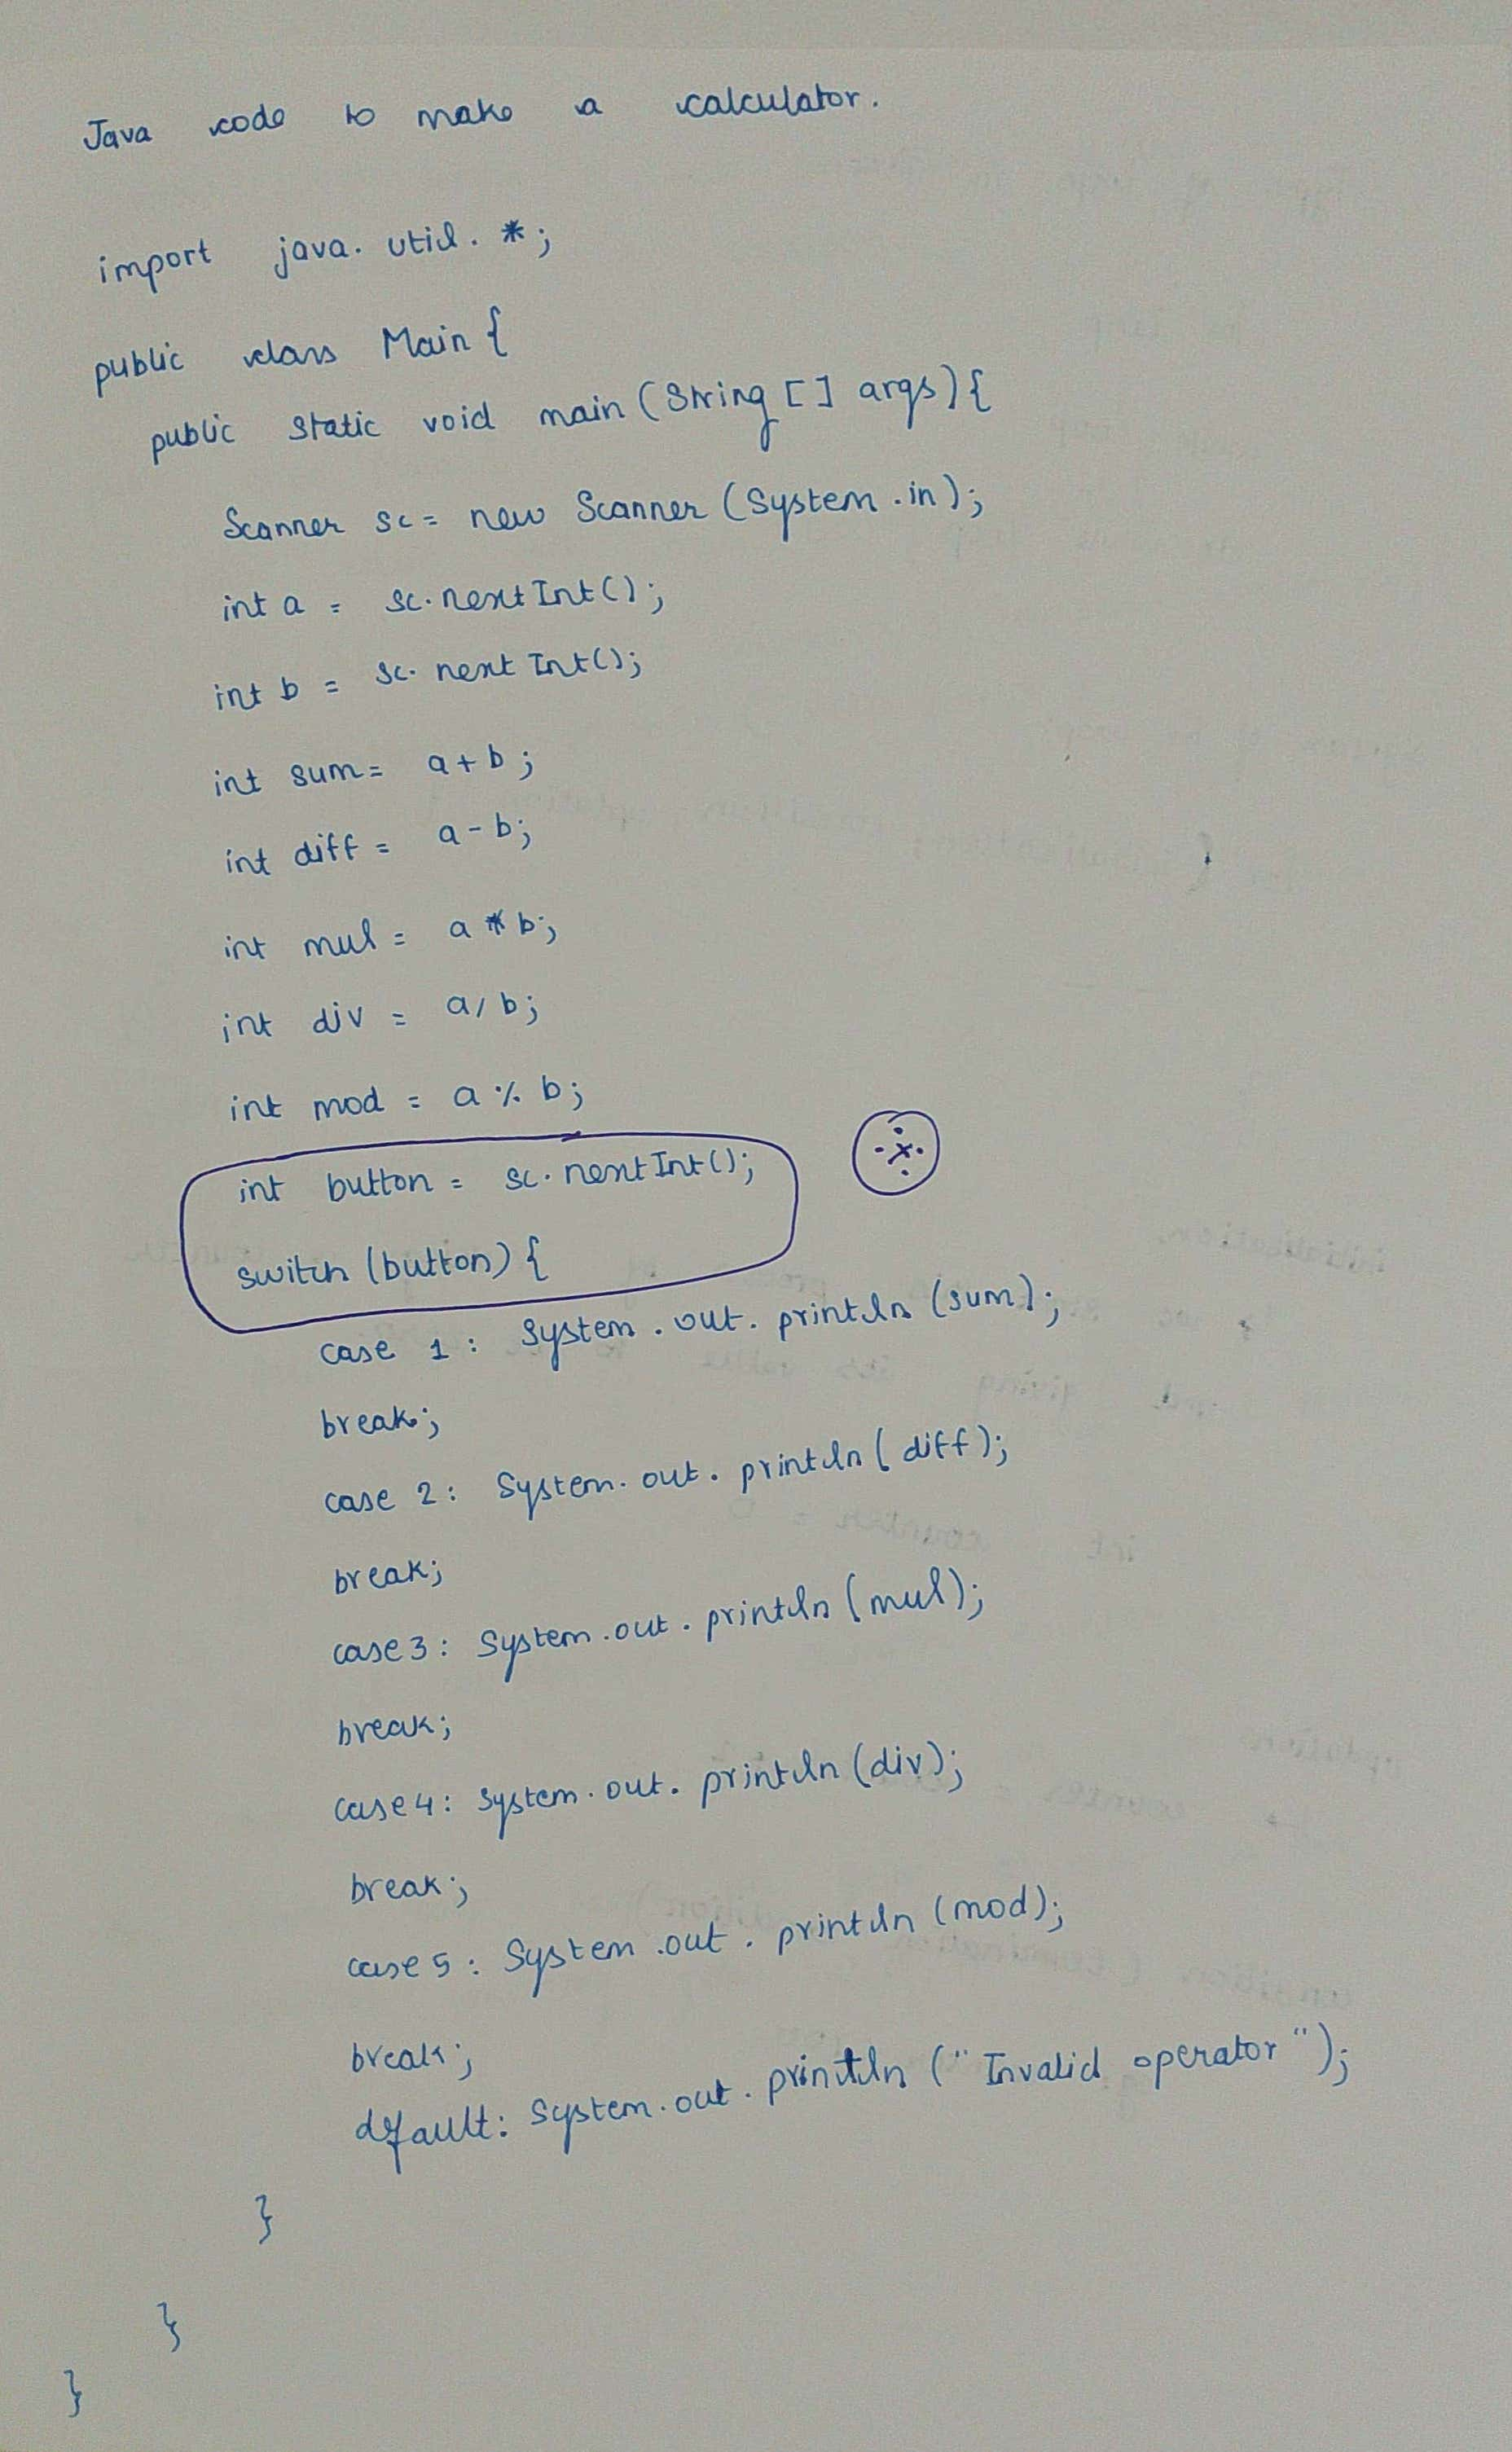 Java code to make a calculator.
import java.util.*;
public class Main {
public static void main (String [] args) {
Scanner sc = new Scanner (System.in);
int a = sc.nextInt();
int b = sc.nextInt();
int sum = a + b;
int diff = a - b;
int mul = a * b;
int div = a / b;
int mod = a % b;
int button = sc.nextInt();
switch (button) {
case 1 : System.out.println (sum);
break;
case 2 : System.out.println (diff);
break;
case 3 : System.out.println (mul);
break;
case 4 : System.out.println (div);
break;
case 5 : System.out.println (mod);
break;
default : System.out.println ("Invalid operator");
}
}
}